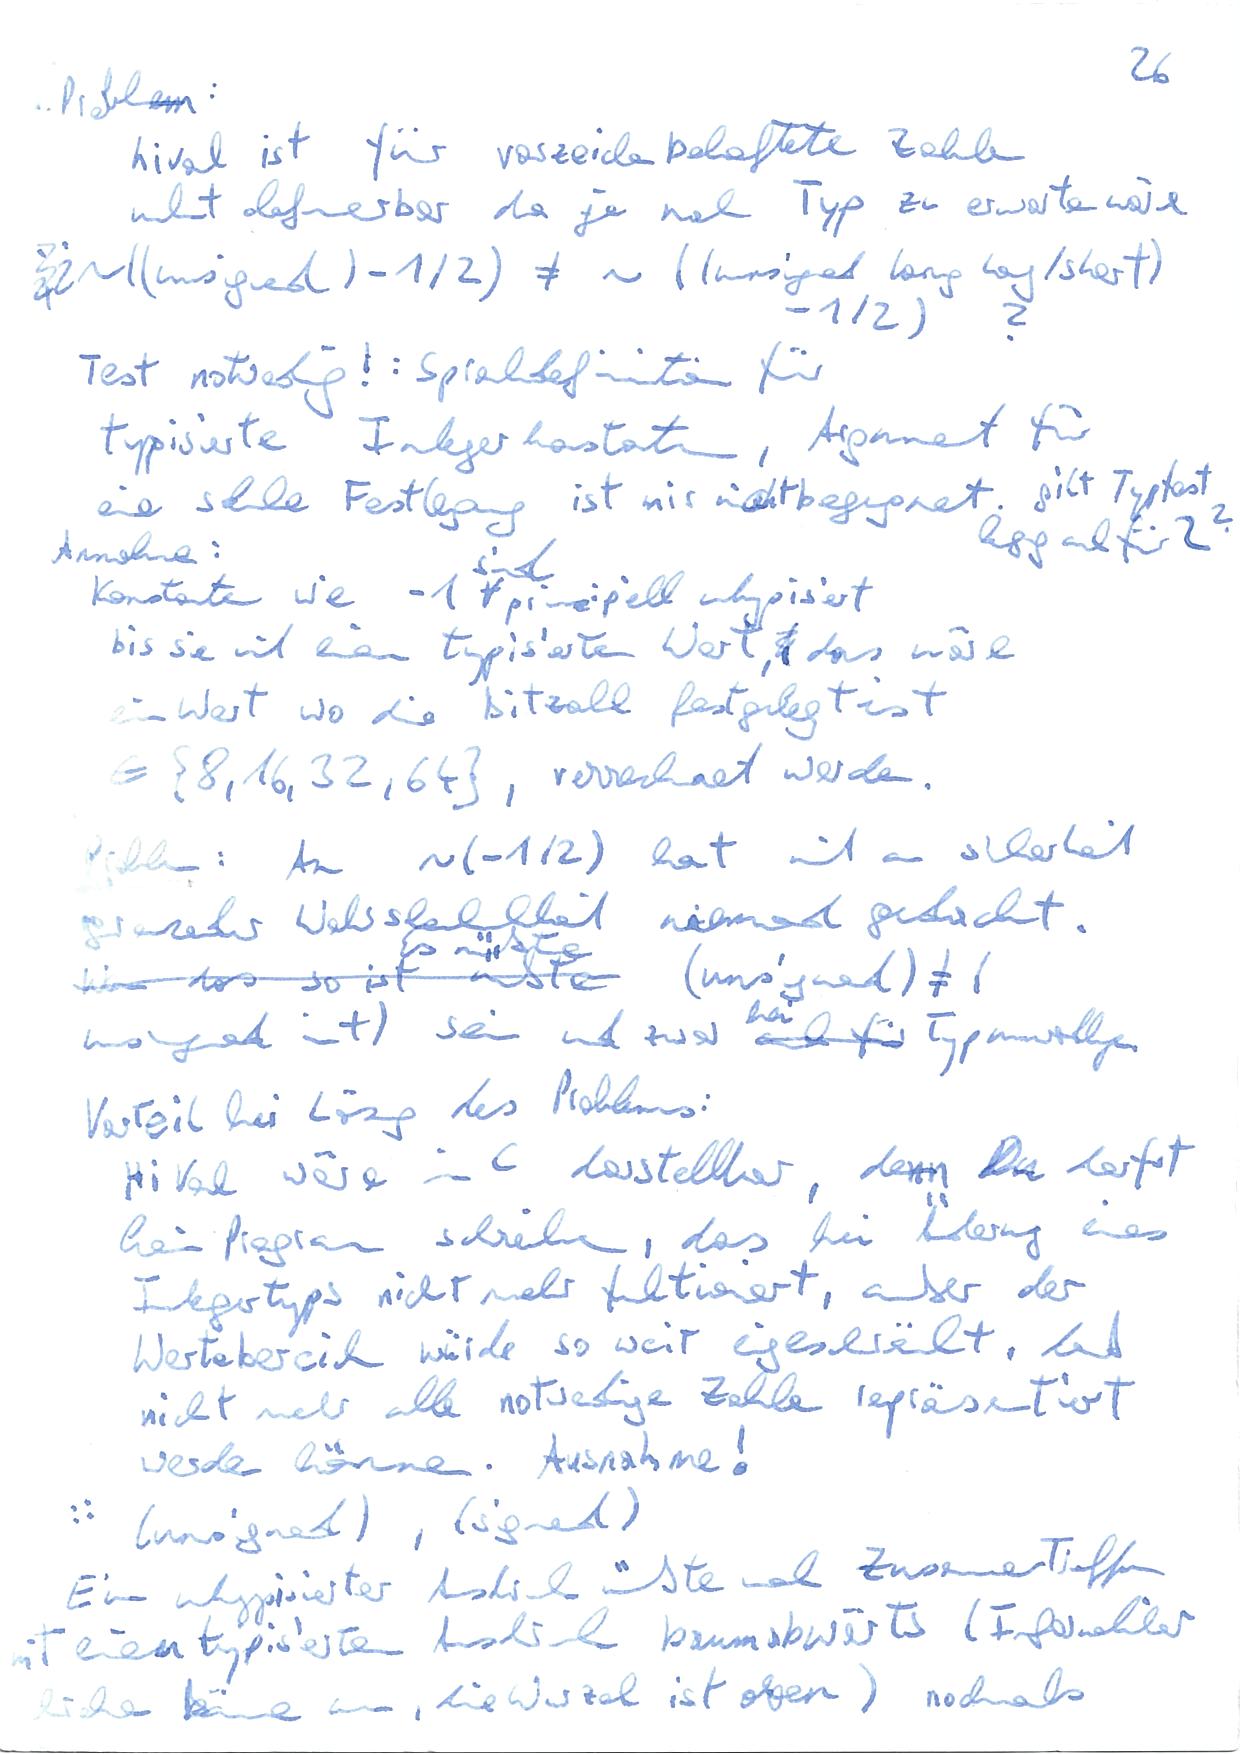 26
Problem:
hival ist für vorzeichenbehaftete Zahlen
nicht definierbar da je nach Typ zu erwarten wäre
~((unsigned)-1/2) ≠ ~((unsigned long long/short)
-1/2) ?
Test notwendig!: Sprachdefinition für
typisierte Integerkonstanten, Argument für
eine solche Festlegung ist mir nicht begegnet. gilt Typtest
auch für 2?
Annahme:
sind
Konstanten wie -1 prinzipiell untypisiert
bis sie mit einem typisierten Wert, das wäre
ein Wert wo die Bitzahl festgelegt ist
∈ {8,16,32,64}, verrechnet werden.
Problem: An ~(-1/2) hat mit an Sicherheit
grenzender Wahrscheinlichkeit niemand gedacht.
es müßte
das so ist müßte (unsigned) ≠ (
unsigned int) sein und zwar bei Typumwandlungen
Vorteil bei Lösung des Problems:
HiVal wäre in C darstellbar, denn Du darfst
kein Programm schreiben, das bei Änderung eines
Integertyps nicht mehr funktioniert, außer der
Wertebereich würde so weit eingeschränkt, daß
nicht mehr alle notwendigen Zahlen repräsentiert
werden können. Ausnahme!
:: (unsigned), (signed)
Ein untypisierter Ausdruck müßte nach Zusammentreffen
mit einem typisierten Ausdruck baumabwärts (Informatiker
Bäume, die Wurzel ist oben) nochmals